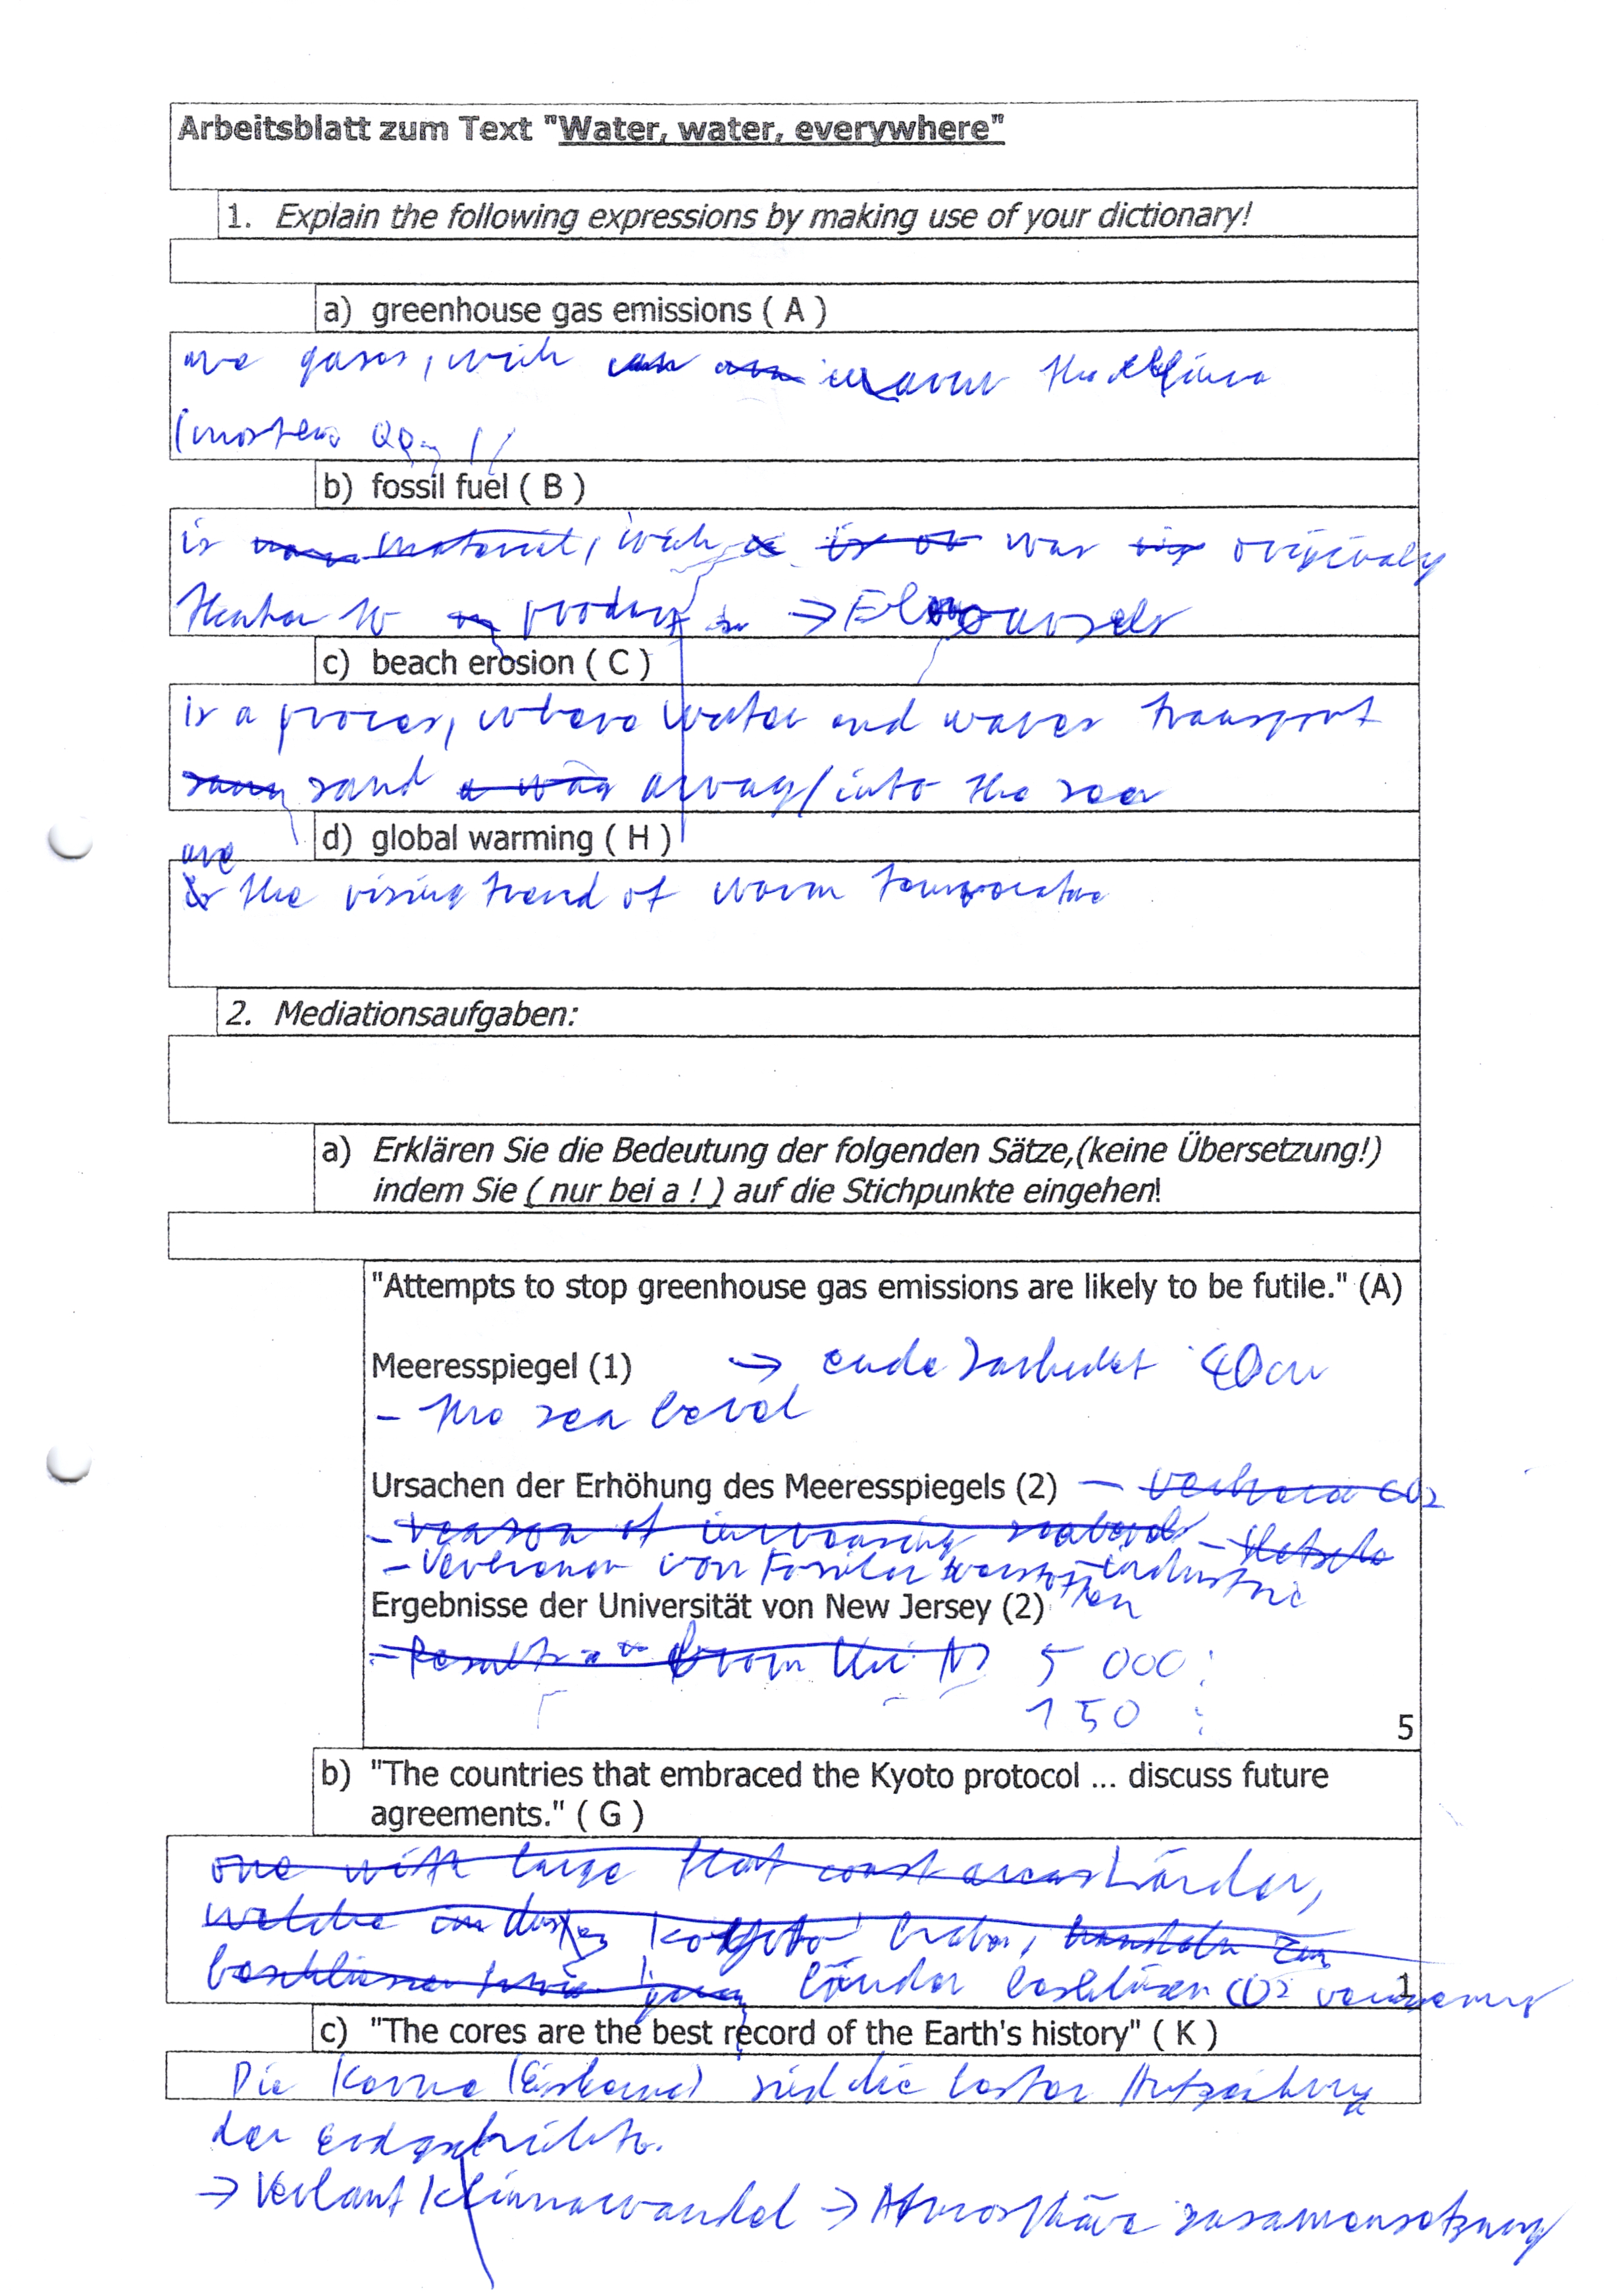 Arbeitsblatt zum Text "Water, water, everywhere"
1. Explain the following expressions by making use of your dictionary!
a) greenhouse gas emissions ( A )
are gases, wich the
b) fossil fuel ( B )
is material, wich is was originaly
to →
c) beach erosion ( C )
is a proces, where water and waves transport
sand away/into the sea
d) global warming ( H )
are
the rising trend of warm
2. Mediationsaufgaben:
a) Erklären Sie die Bedeutung der folgenden Sätze,(keine Übersetzung!)
indem Sie ( nur bei a ! ) auf die Stichpunkte eingehen!
"Attempts to stop greenhouse gas emissions are likely to be futile." (A)
Meeresspiegel (1) → ende 40cm
- the sea level
Ursachen der Erhöhung des Meeresspiegels (2) - CO2
- reason of increasing sealevel -
- von industrie
Ergebnisse der Universität von New Jersey (2)
- Results from 5 000 :
150 :
5
b) "The countries that embraced the Kyoto protocol ... discuss future
agreements." ( G )
one with large flat coast areas Länder,
welche haben,
länder CO2
1
c) "The cores are the best record of the Earth's history" ( K )
Die Kerne (Eiskerne) sind die
der
→ Verlauf Klimawandel → Atmosphäre zusamensetzung